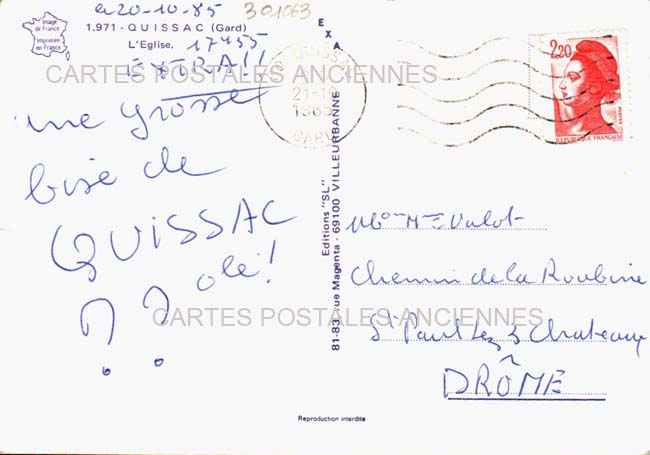 le 20-10-85 301063
Image
de France
Imprimée
en France
1.971 - QUISSAC (Gard)
L'Eglise. 17H55
EXTRA!!
CARTES POSTALES ANCIENNES
une grosse
bise de
QUISSAC
olé!
? ?
CARTES POSTALES ANCIENNES
EXA
Editions "SL"
81-83, rue Magenta - 69100 VILLEURBANNE
QUISSAC
21-10
1985
GARD
2,20
REPUBLIQUE FRANÇAISE
POSTES
Mr Mme Valot
Chemin de la Roubine
St Paul les 3 Chateaux
DRÔME
Reproduction interdite